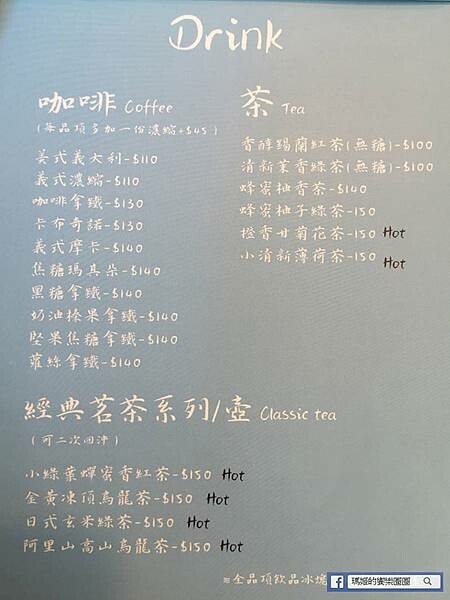 Drink
咖啡 Coffee
(每品項多加一份濃縮+$45)
美式義大利-$110
義式濃縮-$110
咖啡拿鐵-$130
卡布奇諾-$130
義式摩卡-$140
焦糖瑪其朵-$140
黑糖拿鐵-$140
奶油榛果拿鐵-$140
堅果焦糖拿鐵-$140
蘿絲拿鐵-$140
茶 Tea
香醇錫蘭紅茶(無糖)-$100
清新茉香綠茶(無糖)-$100
蜂蜜柚香茶-$140
蜂蜜柚子綠茶-150
橙香甘菊花茶-150 Hot
小清新薄荷茶-150 Hot
經典茗茶系列/壺 Classic tea
(可二次回沖)
小綠葉蟬蜜香紅茶-$150 Hot
金黃凍頂烏龍茶-$150 Hot
日式玄米綠茶-$150 Hot
阿里山高山烏龍茶-$150 Hot
※全品項飲品冰塊
瑪姬的饗樂團團